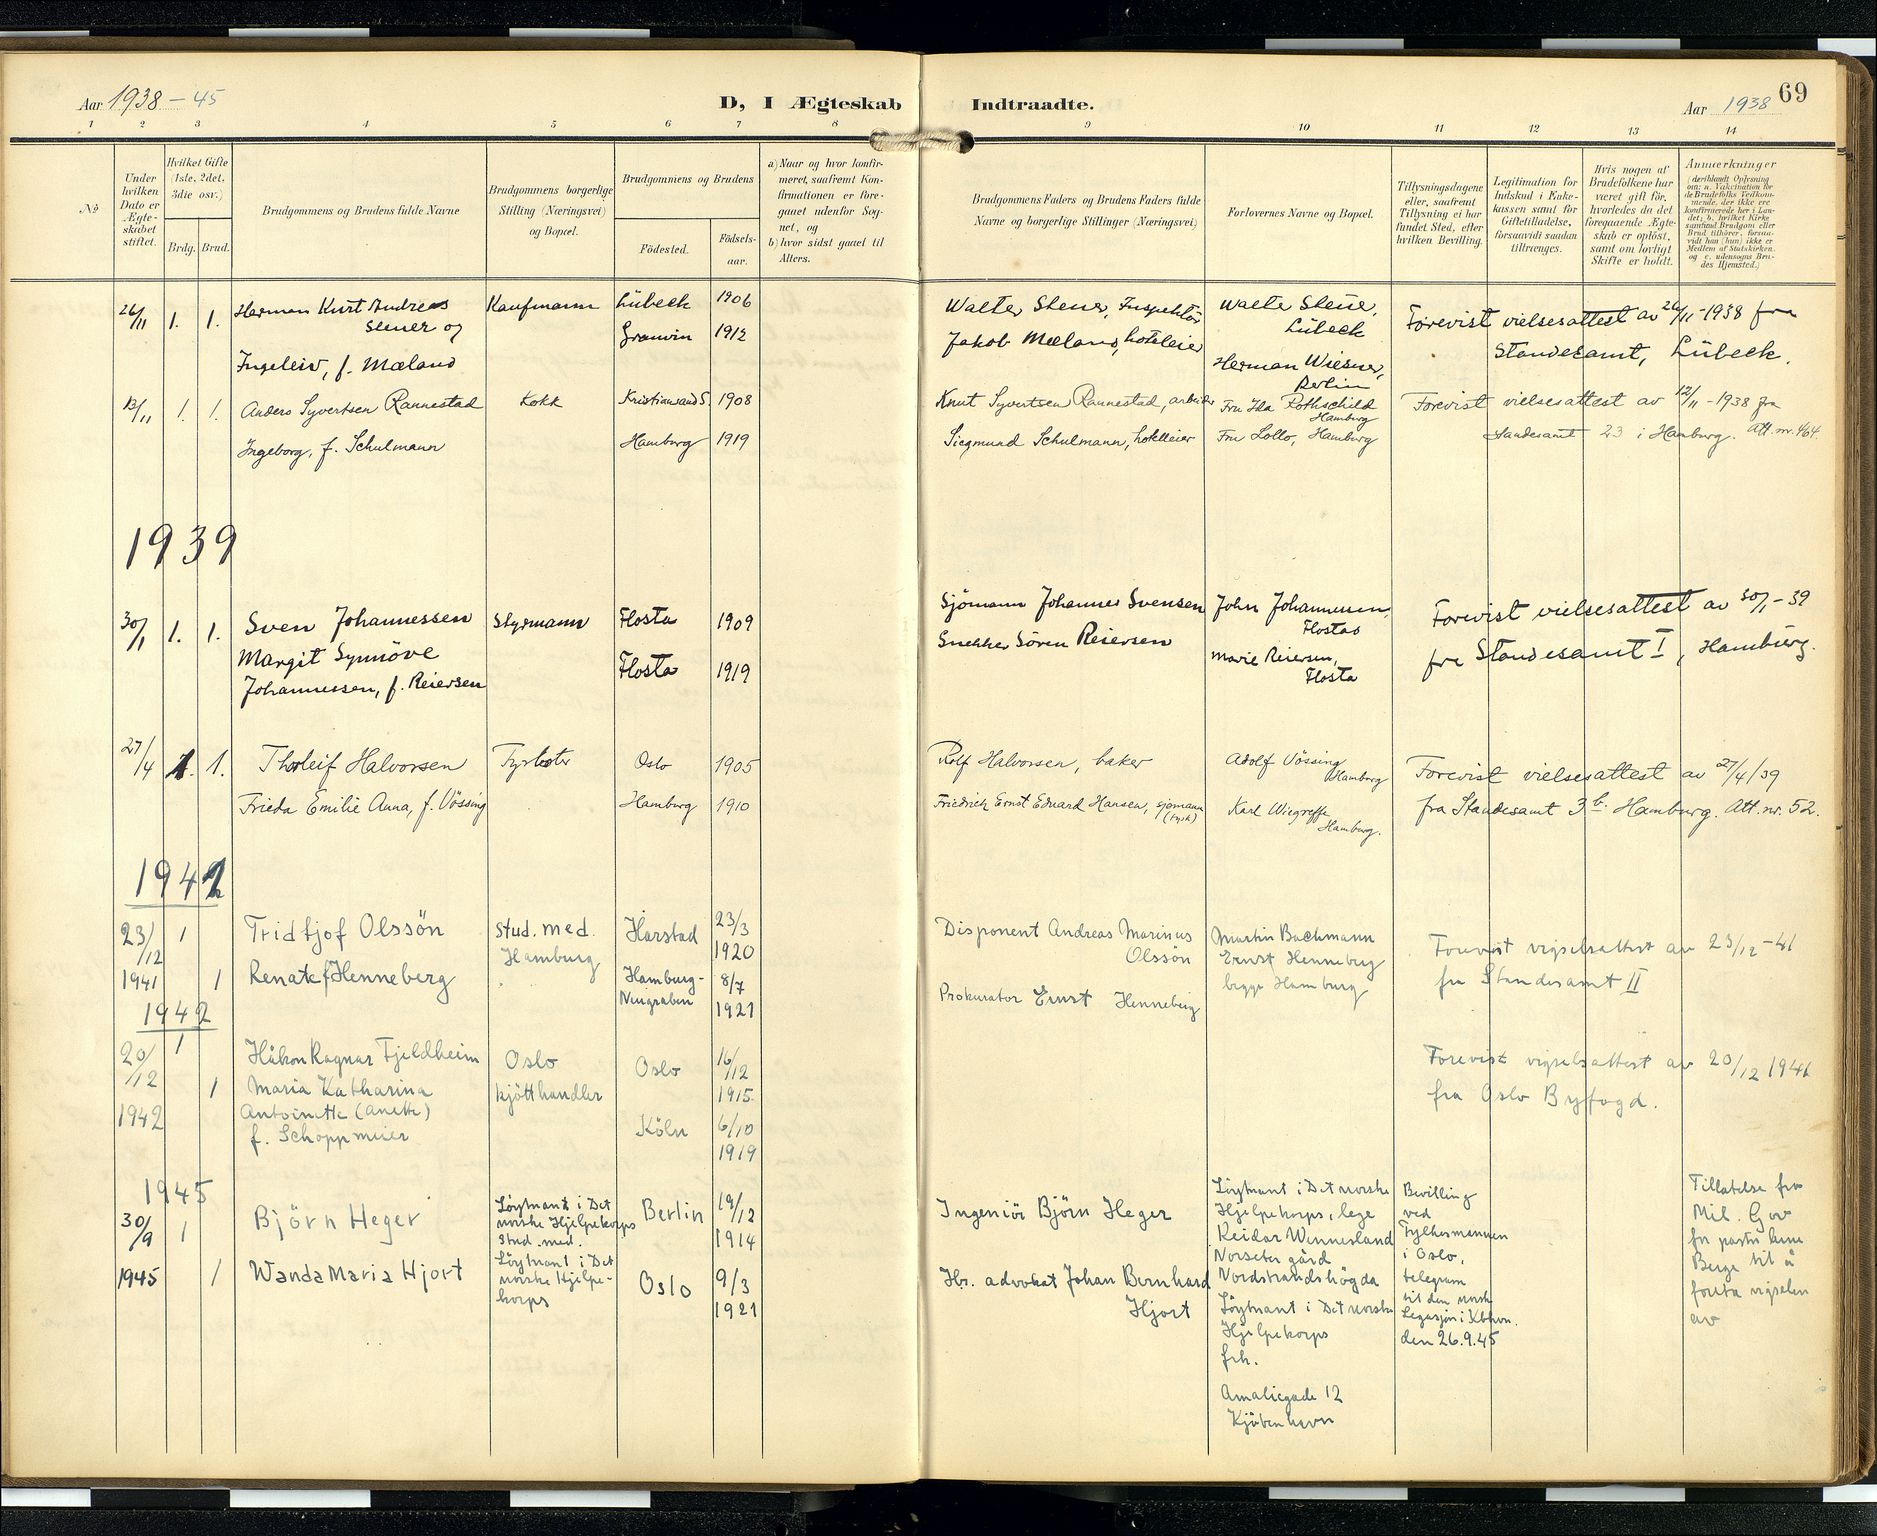 Aar 1938 - 45
D, I Ægteskab Indtraadte.
Aar 1938 69
1 2 3 4 5 6 7 8 9 10 11 12 13 14
No
Under hvilken Dato er Ægteskabet stiftet.
Hvilket Gifte (1ste, 2det, 3die osv.)
Brdg. Brud.
Brudgommens og Brudens fulde Navne
Brudgommens borgerlige Stilling (Næringsvei) og Bopæl.
Brudgommens og Brudens
Födested. Födsels-aar.
a) Naar og hvor konfirmeret, saafremt Konfirmationen er foregaaet udenfor Sognet, og
b) hvor sidst gaaet til Alters.
Brudgommens Faders og Brudens Faders fulde Navne og borgerlige Stillinger (Næringsvei)
Forlovernes Navne og Bopæl.
Tillysningsdagene eller, saafremt Tillysning ei har fundet Sted, efter hvilken Bevilling.
Legitimation for Indskud i Enkekassen samt for Giftetilladelse, forsaavidt saadan tiltrænges.
Hvis nogen af Brudefolkene har været gift før, hvorledes da det foregaaende Ægteskab er opløst, samt om lovligt Skifte er holdt.
Anmærkninger
(deriblandt Oplysning om: a. Vakcination for de Brudefolks Vedkommende, der ikke ere konfirmerede her i Landet; b. hvilket Kirkesamfund Brudgom eller Brud tilhörer, forsaavidt han (hun) ikke er Medlem af Statskirken, og c. udensogns Brudes Hjemsted.)
26/11 1. 1. Herman Kurt Andreas Kaufmann Lübeck 1906
Steuer og Granvin 1912
Ingeleiv, f. Mæland
Walter Steuer, Inspektör Walte Steue, Forevist vielsesattest av 26/11-1938 fra
Lübeck
Jakob Mæland, hoteleier Standesamt, Lübeck.
Herman Wiesner,
Berlin
13/11 1. 1. Anders Syvertsen Rannestad Kokk Kristiansand S. 1908
Ingeborg, f. Schulmann Hamburg 1919
Knut Syvertsen Rannestad, arbeider Fru Ida Rothschild Forevist vielsesattest av 12/11-1938 fra
Hamburg
Siegmund Schulmann, hotelleier Fru Lollo, Hamburg Standesamt 23 i Hamburg. Att. nr. 464.
1939
30/1 1. 1. Sven Johannessen Styrmann Flosta 1909
Margit Synnöve Flosta 1919
Johannessen, f. Reiersen
Sjömann Johannes Svensen John Johannessen, Forevist vielsesattest av 30/1-39
Flostad
Snekker Sören Reiersen Marie Reiersen, fra Standesamt I, Hamburg.
Flosta
27/4 1. 1. Thorleif Halvorsen Fyrbøter Oslo 1905
Frieda Emilie Anna, f. Vössing Hamburg 1910
Rolf Halvorsen, baker Adolf Vössing Forevist vielsesattest av 27/4/39
Hamburg
Friedrich Ernst Eduard Hansen, sjømann (tysk) Karl Wiegreffe fra Standesamt 3 b. Hamburg. Att. nr. 52.
Hamburg.
1941
23/12 1 Fridtjof Olssön stud. med. Harstad 23/3 1920
Hamburg
1941 1 Renate f Henneberg Hamburg-Neugraben 8/7 1921
Disponent Andreas Marinus Olsson Martin Bachmann Forevist vigselsattest av 23/12-41
Ernst Henneberg fra Standesamt II
Prokurator Ernst Henneberg begge Hamburg
1942
20/12 1 Håkon Ragnar Fjeldheim Oslo Oslo 16/12 1915
1942 1 Maria Katharina kjötthandler
Antoinette (Anette) Köln 6/10 1919
f. Schoppmeier
Forevist vigselsattest av 20/12 1941
fra Oslo Byfogd.
1945
30/9 1 Björn Heger Løytnant i Det norske Hjelpekorps Stud. med. Berlin 19/12 1914
1945 1 Wanda Maria Hjort Løytnant i Det norske Hjelpekorps Oslo 9/3 1921
Ingeniör Björn Heger
Hr. advokat Johan Bernhard
Hjort
Løytnant i Det norske
Hjelpekorps, lege
Reidar Wennesland
Norseter gård
Nordstrandshögda
Løytnant i Det norske
Hjelpekorps
frk.
Amaliegade 12
Kjöbenhavn
Bevilling
ved
Fylkesmannen
i Oslo,
telegram
til den norske
Legasjon i Kbhvn.
den 26.9.45
Tillatelse fra
Mil. Gov
for pastor Arne
Berge til å
foreta vigselen
av